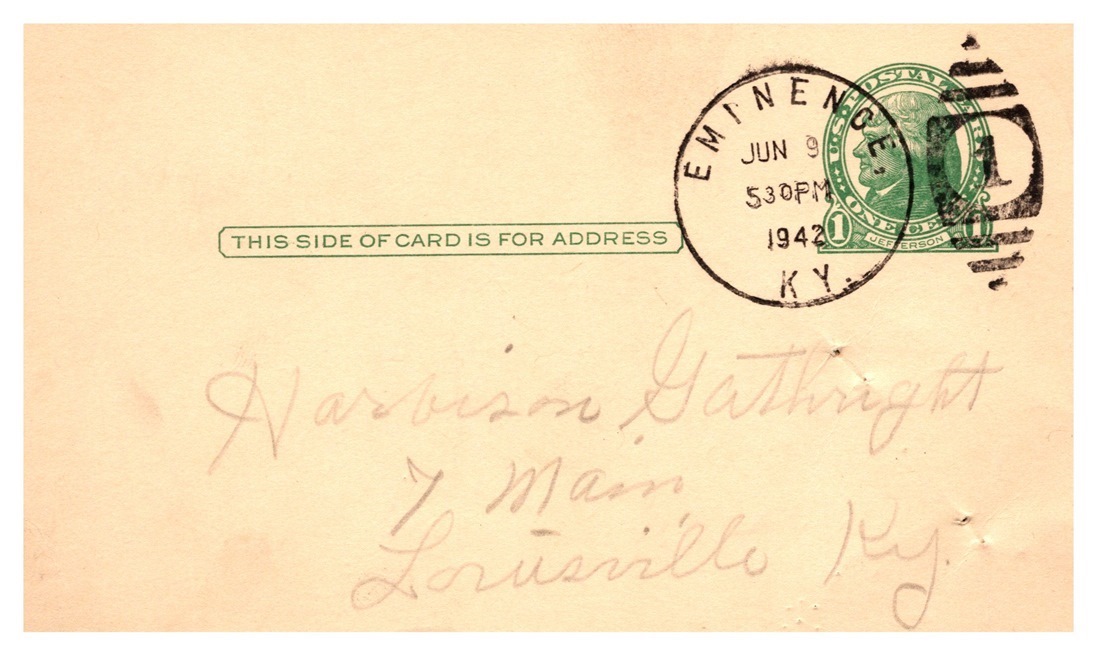 EMINENCE,
JUN 9
530PM
1942
KY.
1
U.S. POSTAL CARD
ONE CENT
1
JEFFERSON
THIS SIDE OF CARD IS FOR ADDRESS
Harbison Gathright
7 Main
Louisville Ky.